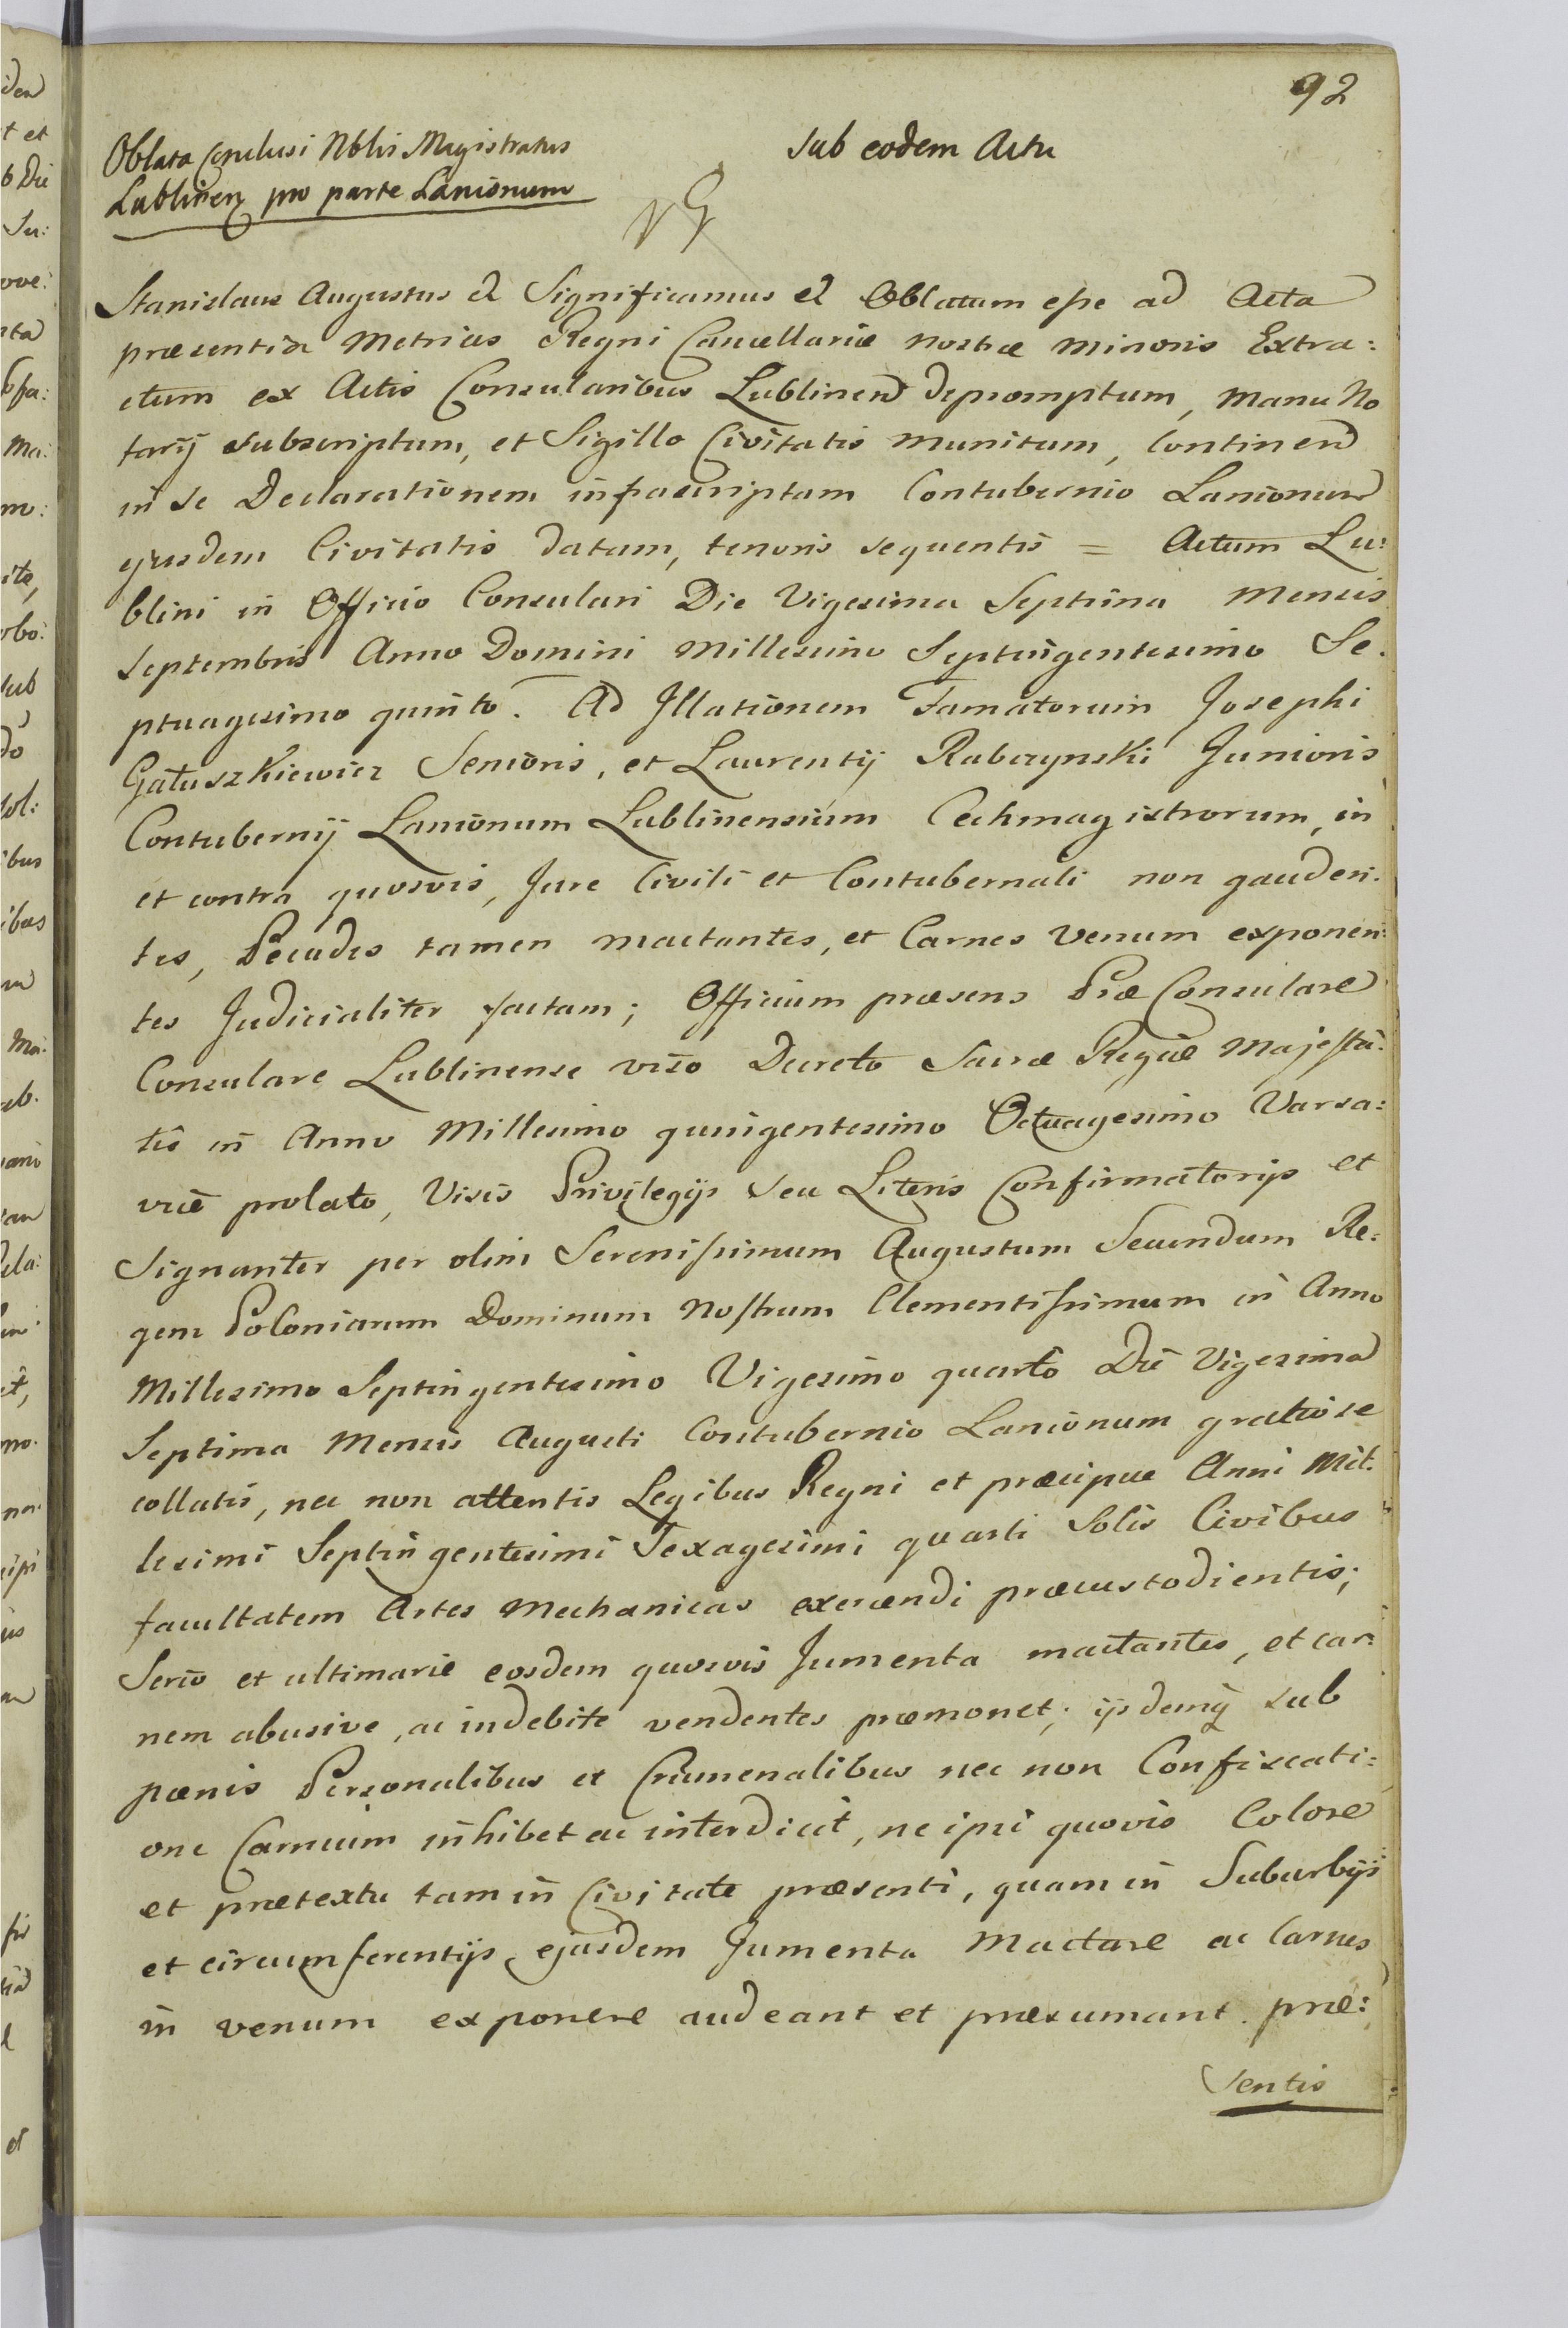 92
Oblata Conclusi Nblis Magistratus
Lublinen pro parte Lanionum
sub eodem Actu
Stanislaus Augustus et Significamus et Oblatum esse ad Acta
præsentia Metrices Regni Cancellariæ nostræ minoris Extra:
ctum ex Actis Consularibus Lublinen depromptum, manu No
tarij subscriptum, et Sigillo Civitatis munitum, Continen
in se Declarationem infrascriptam Contubernio Lanionum
ejusdem Civitatis datam, tenoris sequentis = Actum Lu:
blini in Officio Consulari Die Vigesima Septima Mensis
Septembris Anno Domini Millesimo Septingentesimo Se.
ptuagesimo quinto. Ad Illationem Famatorum Josephi
Gałuszkiewicz Senioris, et Laurentij Rabczynski Junioris
Contubernij Lanionum Lublinensium Cechmagistrorum, in
et contra quosvis, Jure Civili et Contubernali non gauden:
tes, Pecudes tamen mactantes, et Carnes Venum exponen:
tes Judicialiter factam; Officium præsens Præ Consulare
Consulare Lublinense viso Decreto Sacræ Regiæ Majesta:
tis in Anno Millesimo quingentesimo Octuagesimo Varsa:
viæ prolato, Visis Privilegijs seu Literis Confirmatorijs et
Signanter per olim Serenissimum Augustum Secundum Re:
gem Poloniarum Dominum Nostrum Clementissimum in Anno
Millesimo Septingentesimo Vigesimo quarto Die Vigesima
Septima Mensis Augusti Contubernio Lanionum gratiose
collatis, nec non attentis Legibus Regni et præcipue Anni Mil.
lesimi Septingentesimi Sexagesimi quarti Solis Civibus
facultatem Artes Mechanicas exercendi præcustodientis;
Serio et ultimarie eosdem quosvis Jumenta mactantes, et car:
nem abusive, ac indebite vendentes præmonet; ijsdemq sub
pænis Personalibus et Crumenalibus nec non Confiscati:
one Carnium inhibet ac interdicit, ne ipsi quovis Colore
et prætextu tam in Civitate præsenti, quam in Suburbijs
et circumferentijs ejusdem Jumenta Mactare ac Carnes
in venum exponere audeant et præsumant. præ:
sentis